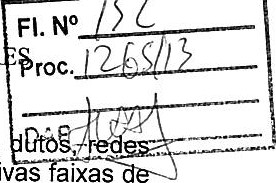 Fl. Nº 152
ES
Proc. 1265/13
dutos, redes
ivas faixas de